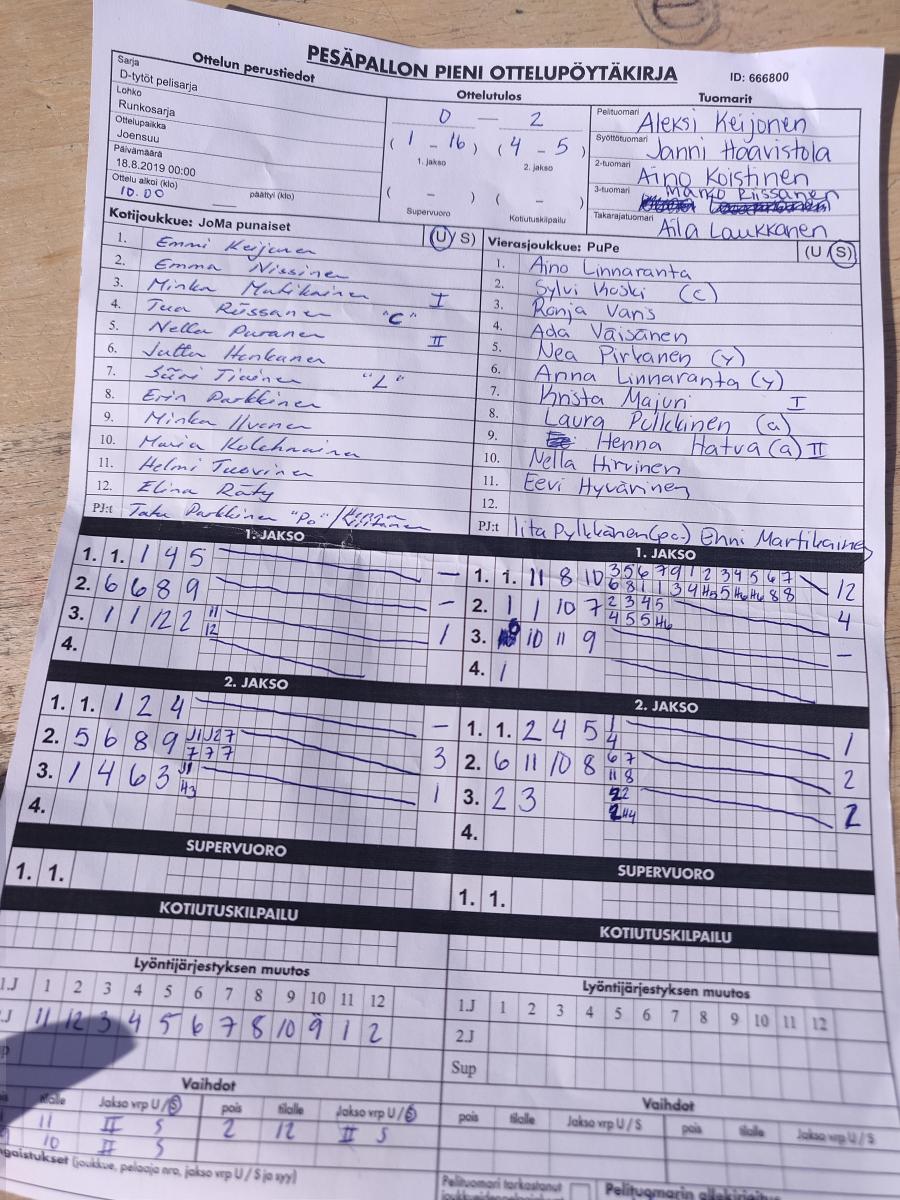 PESÄPALLON PIENI OTTELUPÖYTÄKIRJA
ID: 666800
Ottelun perustiedot
Sarja
D-tytöt pelisarja
Lohko
Runkosarja
Ottelupaikka
Joensuu
Päivämäärä
18.8.2019 00:00
Ottelu alkoi (klo) päättyi (klo)
10.00
Ottelutulos
0 — 2
( 1 - 16 ) ( 4 - 5 )
1. jakso 2. jakso
( - ) ( - )
Supervuoro Kotiutuskilpailu
Tuomarit
Pelituomari Aleksi Keijonen
Syöttötuomari Janni Haavistola
2-tuomari Aino Koistinen
3-tuomari Marko Piissanen
Takarajatuomari Aila Laukkanen
Kotijoukkue: JoMa punaiset (U / S)
1. Emmi Keijonen
2. Emma Nissinen
3. Minka Matikainen I
4. Tua Rissanen "C"
5. Nella Puranen II
6. Jutta Honkanen
7. Siiri Tiainen "L"
8. Erin Parkkinen
9. Minka Ilvonen
10. Maria Kolehmainen
11. Helmi Tuovinen
12. Elina Räty
PJ:t Tatu Parkkinen "Po" /
Vierasjoukkue: PuPe (U / S)
1. Aino Linnaranta
2. Sylvi Koski (c)
3. Ronja Varis
4. Ada Väisänen
5. Nea Pirkanen (y)
6. Anna Linnaranta (y)
7. Krista Majuri I
8. Laura Pulkkinen (a)
9. Henna Hatva (a) II
10. Nella Hirvinen
11. Eevi Hyvärinen
12.
PJ:t Iita Pylkkänen (po-) Enni Martikainen
1. JAKSO
1. 1. 1 4 5 —
2. 6 6 8 9 —
3. 1 1 12 2 11 1
12
4.
1. JAKSO
1. 1. 11 8 10 3 5 6 7 9 1 2 3 4 5 6 7 12
6 8 1 1 3 4 H5 5 H6 H6 8 8
2. 1 1 10 7 2 3 4 5 4
4 5 5 H6
3. 10 11 9 —
4. 1
2. JAKSO
1. 1. 1 2 4 —
2. 5 6 8 9 J1 J2 7 3
7 7 7
3. 1 4 6 3 J1 1
H3
4.
2. JAKSO
1. 1. 2 4 5 1 1
4
2. 6 11 10 8 6 7 2
11 8
3. 2 3 2
4.
SUPERVUORO
1. 1.
SUPERVUORO
1. 1.
KOTIUTUSKILPAILU
KOTIUTUSKILPAILU
Lyöntijärjestyksen muutos
1.J 1 2 3 4 5 6 7 8 9 10 11 12
11 12 3 4 5 6 7 8 10 9 1 2
Lyöntijärjestyksen muutos
1.J 1 2 3 4 5 6 7 8 9 10 11 12
2.J
Sup
Vaihdot
tilalle Jakso vrp U / S pois tilalle Jakso vrp U / S
11 II S 2 12 II S
10 II S
Vaihdot
pois tilalle Jakso vrp U / S pois tilalle Jakso vrp U / S
(joukkue, pelaaja nro, jakso vrp U / S ja syy)
Pelituomari tarkastanut